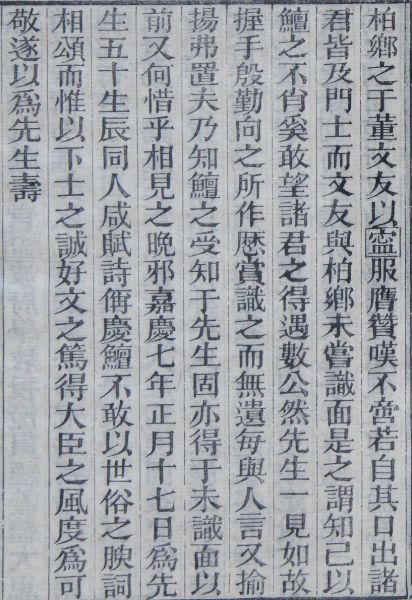 柏鄉之于董文友以盌服膺贊嘆不啻若自其口出諸
君皆及門士而文友與柏鄉未嘗識面是之謂知己以
鱣之不肖奚敢望諸君之得遇數公然先生一見如故
握手殷勤向之所作歷賞識之而無遺每與人言又揄
揚弗置夫乃知鱣之受知于先生固亦得于未識面以
前又何惜乎相見之晚邪嘉慶七年正月十七日為先
生五十生辰同人咸賦詩侑慶鱣不敢以世俗之腴詞
相頌而惟以下士之誠好文之篤得大臣之風度為可
敬遂以為先生壽